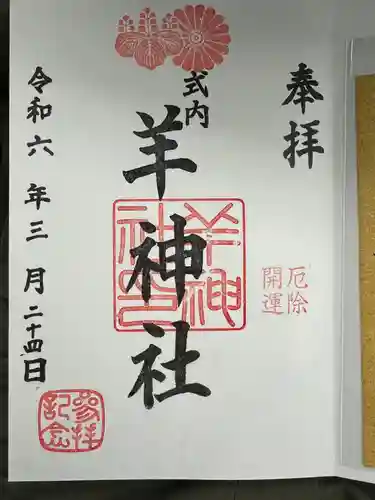 奉拝
厄除
開運
式内
羊神社
羊神社之印
令和六年三月二十四日
参拝
記念